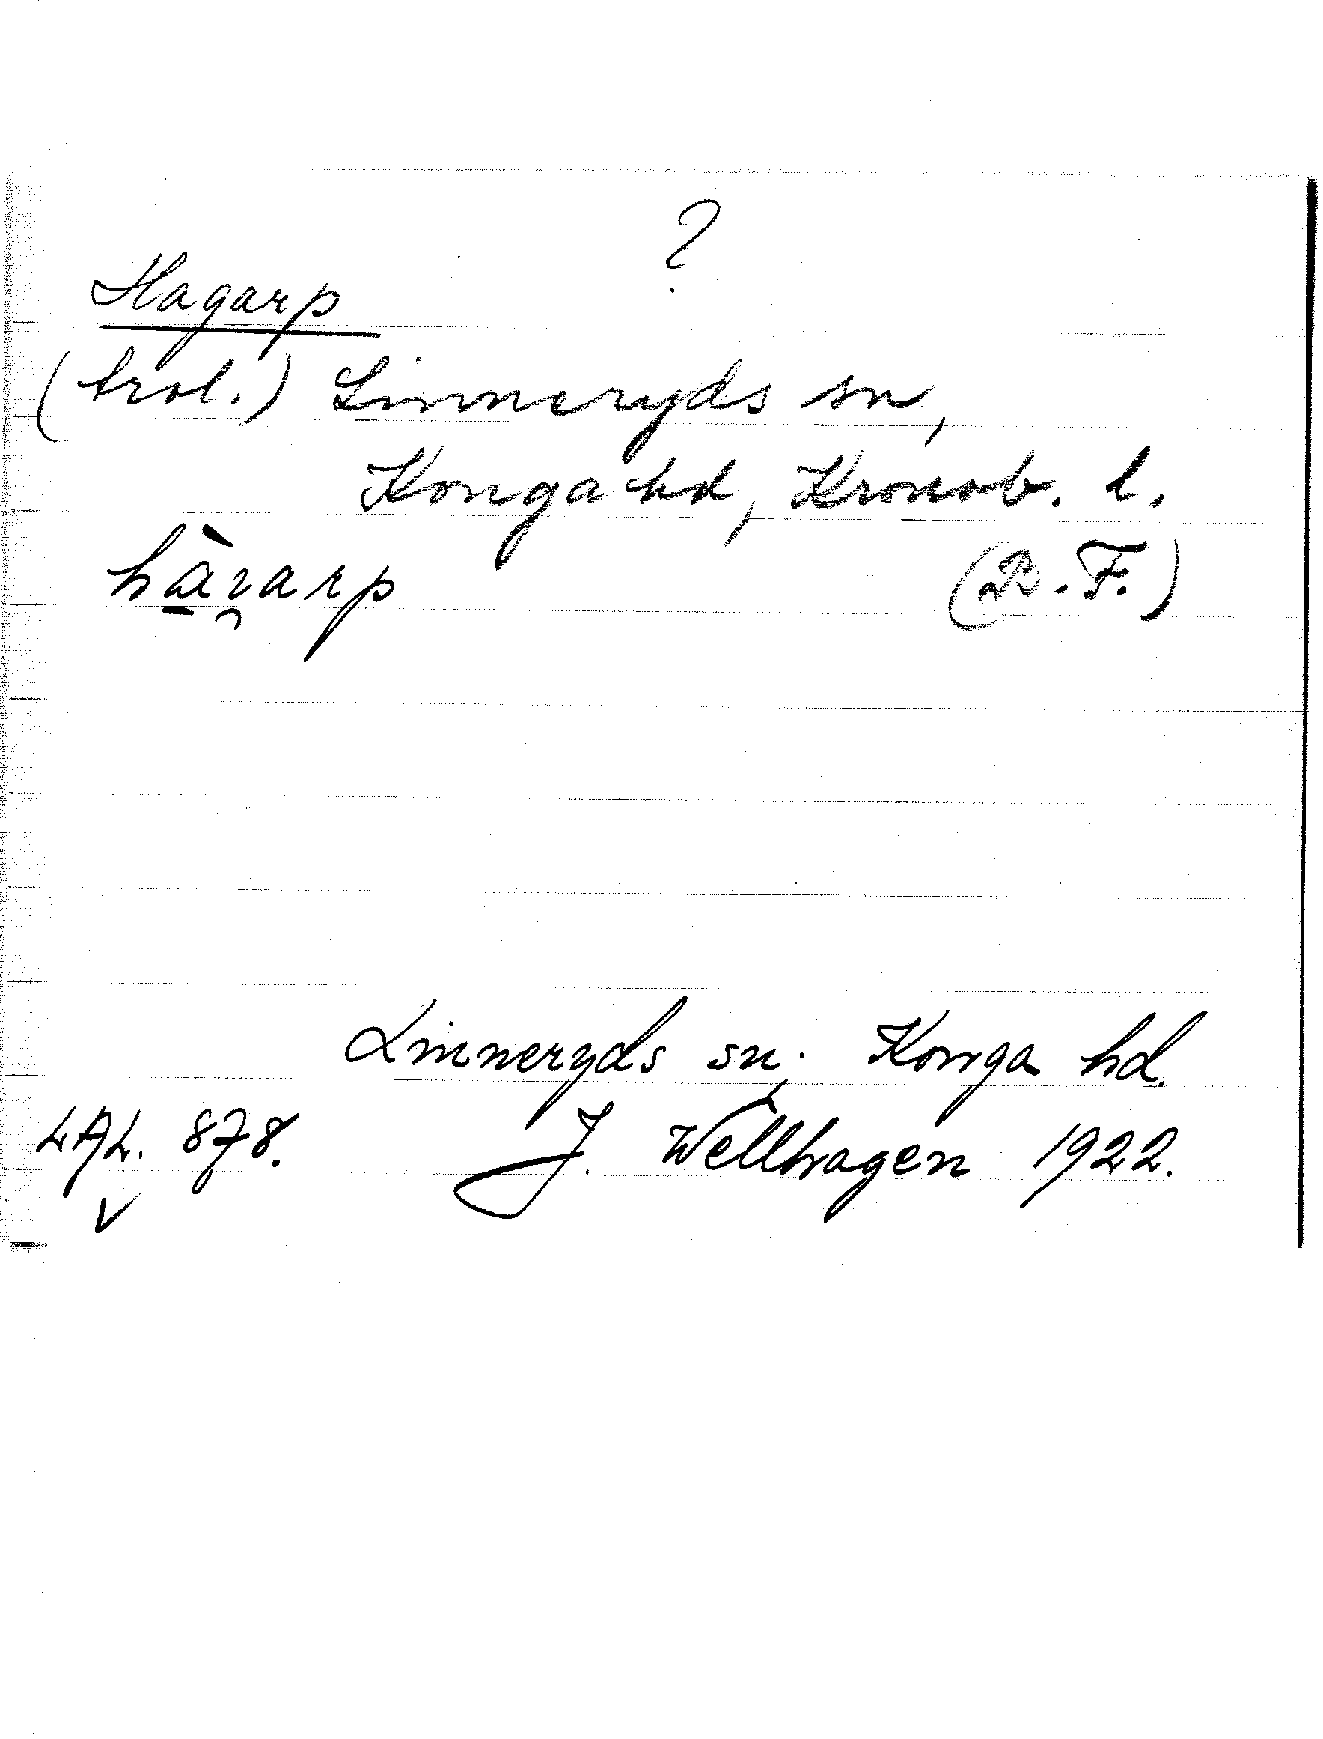 ?
Hagarp
(trol.) Linneryds sn,
Konga hd, Kronob. l.
hàɀarp (R.F.)
Linneryds sn. Konga hd.
LAL. 878. J. Wellhagen 1922.
V